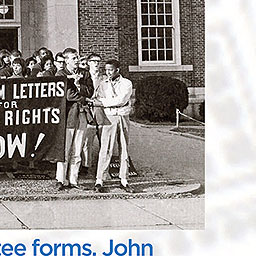 M LETTERS
FOR
RIGHTS
OW!
tee forms. John